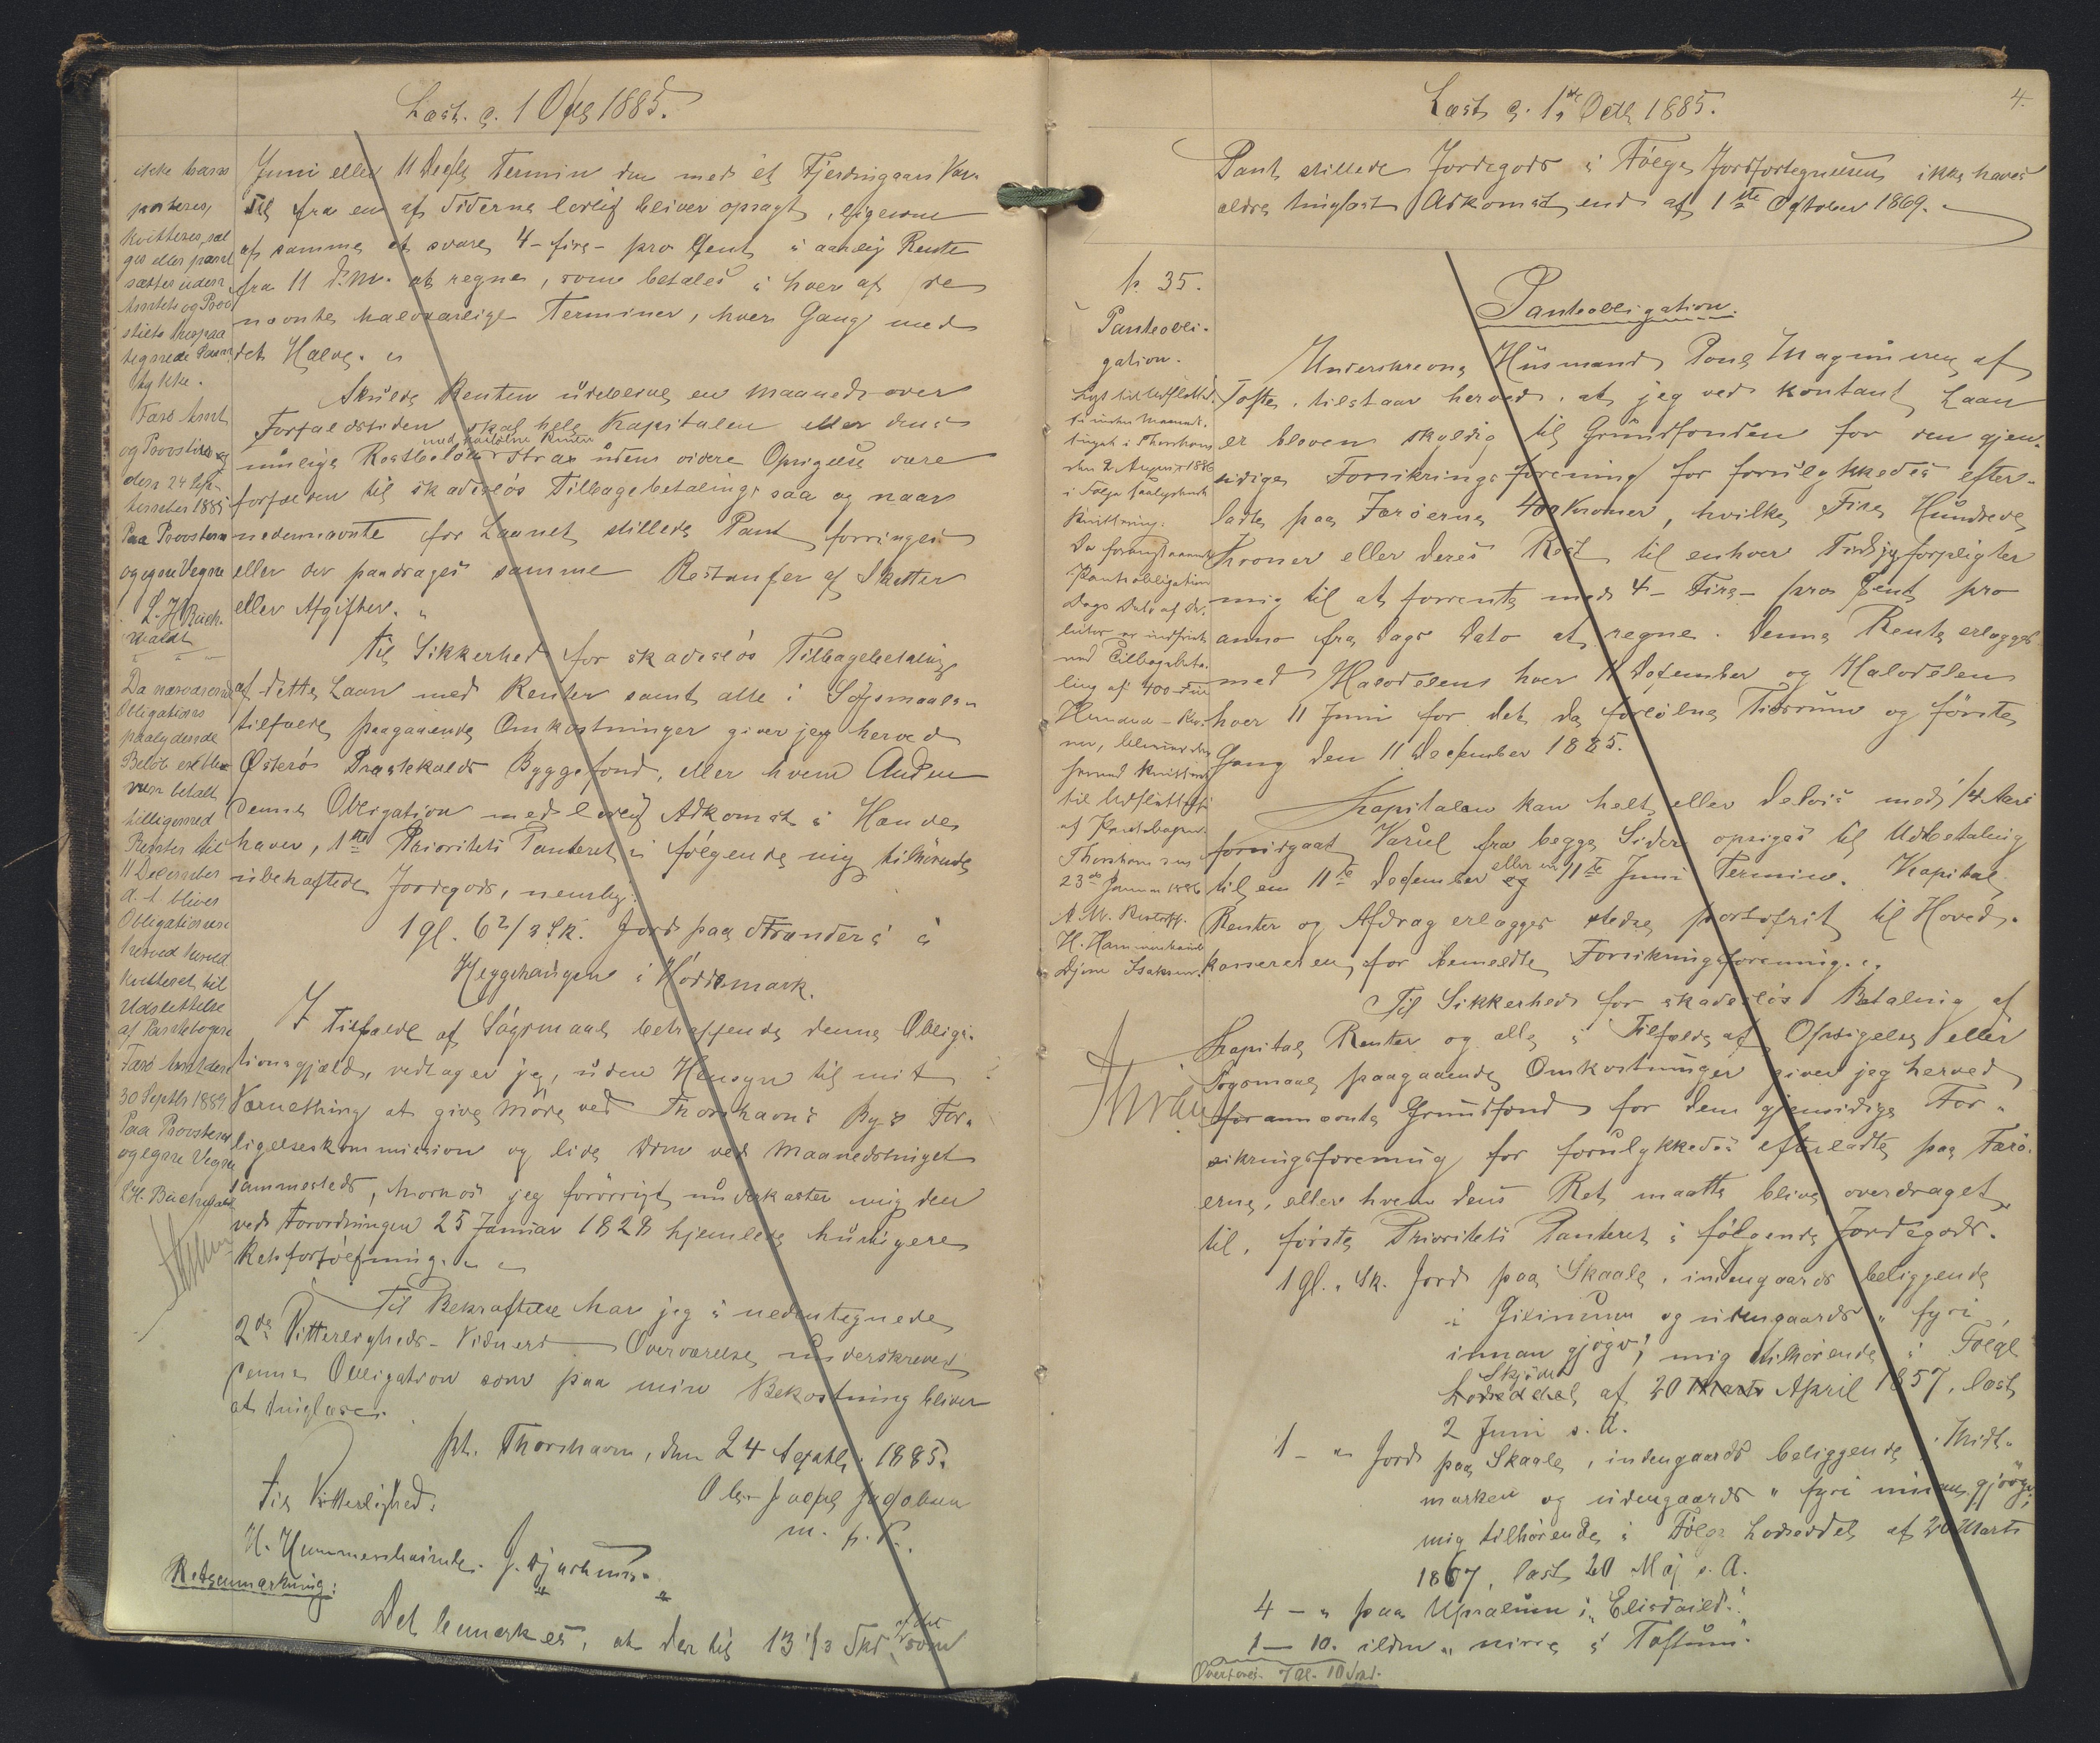 Læst. d. 1 Octb 1885.
ikke trans
porteres,
kvitteres, sæl
ges eller pant
sættes uden
Amtets og Prov
stiets herpaa
tegnede Sam
tykke.
Færø Amt
og Provsti
den 24 Sep-
tember 1885
Paa Provstens
og egne Vegne
L. H. Buch-
waldt
Da nærværende
Obligations
paalydende
Beløb er ble
ven betalt
tilligemed
Renter til
11 December
d. A. bliver
Obligationen
herved
kvitteret til
Udslettelse
af Pantebogen
Færø Amt den
30 Septbr 1889
Paa Provstens
og egne Vegne
L. H. Buchwaldt
Juni eller 11 Decbr Termin den med et Fjerdingaars Var-
sel fra en af Siderne lovlig bliver opsagt, ligesom
af samme at svare 4 - fire - pro Cent i aarlig Rente
fra 11 d. M. at regne, som betales i hver af de
nævnte halvaarlige Terminer, hver Gang med
det Halve.
Skulde Renten udeblive en Maaned over
Forfaldstiden skal hele Kapitalen eller dens
mulige Restbeløb med paaløbne Renter strax uden videre Opsigelse være
forfalden til skadesløs Tilbagebetaling saa og naar
nedennævnte for Laanet stillede Pant forringes
eller der paadrages samme Restancer af Skatter
eller Afgifter.
Til Sikkerhed for skadesløs Tilbagebetaling
af dette Laan med Renter samt alle i Søgsmaals-
tilfælde paagaaende Omkostninger giver jeg herved
Østerøs Præstekalds Byggefond, eller hvem Anden
denne Obligation med lovlig Adkomst i Hænde
haver, 1ste Prioritets Panteret i følgende mig tilhørende
ubehæftede Jordegods, nemlig:
1 gl. 6 2/3 Sk. Jord paa Strender i
Heygshaugen i Hørsmark.
I Tilfælde af Søgsmaal betræffende denne Obliga-
tionsgjæld, vedtager jeg, uden Hensyn til mit
Værnething at give Møde ved Thorshavns Bys For-
ligelseskommission og lide Dom ved Maanedstinget
sammesteds, hvorhos jeg forøvrigt underkaster mig den
ved Forordningen 25 Januar 1828 hjemlede hurtigere
Retsforfølgning.
Til Bekræftelse har jeg i nedentegnede
2de Vitterligheds-Vidners Overværelse underskrevet
denne Obligation som paa min Bekostning bliver
at tinglæse.
pt. Thorshavn, den 24 Septbr. 1885.
Ole Jacob Jacobsen
m. p. P.
Til Vitterlighed:
H. Hammershaimb. J. Djurhuus.
Retsanmærkning:
Det bemærkes, at der til 13 1/3 Skd. af det som
Læst d. 1ste Octb 1885.
4.
Pant stillede Jordegods i Følge Jordfortegnelsen ikke haves
ældre tinglæst Adkomst end af 1ste October 1869.
p. 35.
Panteobli-
gation.
Lyst til Udslettel-
se under Maaneds-
tinget i Thorshavn
den 2 August 1886
i Følge saalydende
Kvittering:
Da foranstaaende
Panteobligation
Dags Dato af De-
bitor er indfriet
med Tilbagebeta-
ling af 400 - Fire
Hundrede - Kro-
ner, bliver den
herved kvitteret
til Udslettelse
af Pantebogen.
Thorshavn den
23de Januar 1886
A. W. Restorff.
H. Hammershaimb
Djone Isaksen.
Panteobligation.
Underskrevne Huusmand Poul Magnussen af
Tofte, tilstaar herved, at jeg ved kontant Laan
er bleven skyldig til Grundfonden for den gjen-
sidige Forsikringsforening for forulykkedes efter-
ladte paa Færøerne 400 Kroner, hvilke Fire Hundrede
Kroner eller deres Rest til enhver Tid jeg forpligter
mig til at forrente med 4 - Fire - pro Cent pro
anno fra Dags Dato at regne. Denne Rente erlægges
med Halvdelen hver 11 December og Halvdelen
hver 11 Juni for det da forløbne Tidsrum og første
Gang den 11 December 1885.
Kapitalen kan helt eller delvis med 1/4 Aars
forudgaaet Varsel fra begge Sider opsiges til Udbetaling
til en 11te December og eller en 11te Juni Termin. Kapital,
Renter og Afdrag erlægges stedse portofrit til Hoved-
kassereren for bemeldte Forsikringsforening.
Til Sikkerhed for skadesløs Betaling af
Kapital, Renter og alle i Tilfælde af Opsigelse eller
Søgsmaal paagaaende Omkostninger giver jeg herved
forannævnte Grundfond for den gjensidige For-
sikringsforening for forulykkedes efterladte paa Færø-
erne, eller hvem dens Ret maatte blive overdraget
til, første Prioritets Panteret i følgende Jordegods.
1 gl. " Sk. Jord paa Skaale, indengaards beliggende
i Gilinum og udengaards " fyri
innan gjógv", mig tilhørende i Følge
Lodseddel Skjøde af 20 Marts April 1857, læst
2 Juni s. A.
1 - " Jord paa Skaale, indengaards beliggende i Midt-
marken og udengaards " fyri innan gjógv",
mig tilhørende i Følge Lodseddel af 20 Marts
1867, læst 20 Maj s. A.
4 - " paa
1 - 10. " " i Toftum".
Overføres. 7 Gl. 10 Skd.